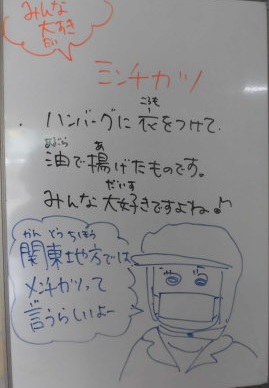 みんな
大すき
ミンチカツ
ころも
ハンバーグに衣をつけて、
あぶら　あ
油で揚げたものです。
だいす
みんな大好きですよね♪
かんとうちほう
関東地方では
メンチカツって
言うらしいよー